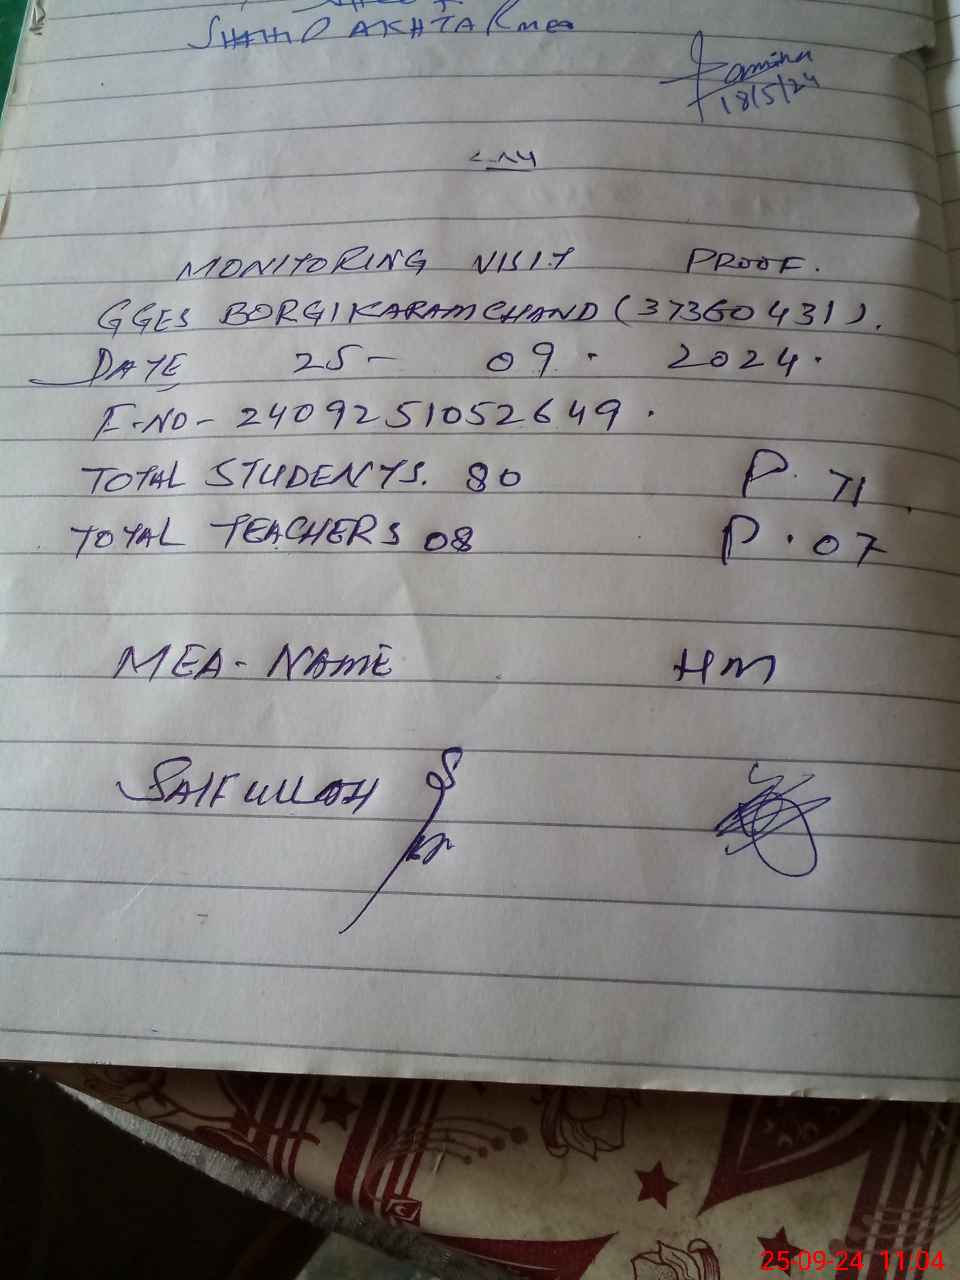 SHAHID AKHTAR mea
18/5/24
MONITORING VISIT PROOF.
GGES BORGIKARAMCHAND (37360431).
DATE 25- 09. 2024.
F-NO- 2409251052649.
TOTAL STUDENTS. 80 P. 71
TOTAL TEACHERS 08 P. 07
MEA- NAME HM
SAIFULLAH
25-09-24 11:04